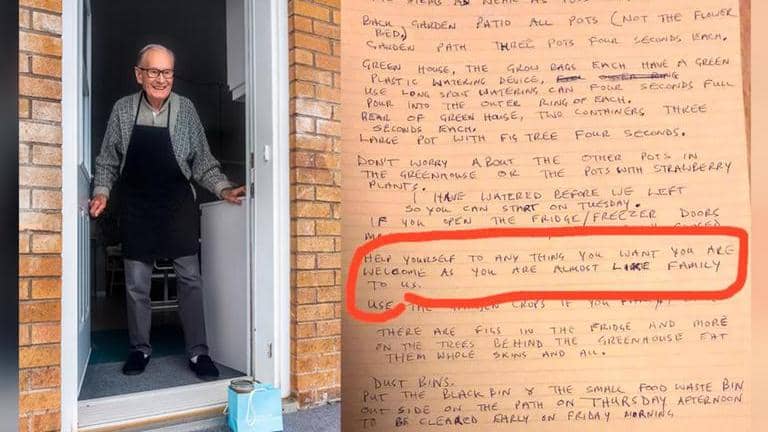 BACK GARDEN PATIO ALL POTS (NOT THE FLOWER
BED)
GARDEN PATH THREE POTS FOUR SECONDS EACH.
GREEN HOUSE, THE GROW BAGS EACH HAVE A GREEN
PLASTIC WATERING DEVICE,
USE LONG SPOUT WATERING CAN FOUR SECONDS FULL
POUR INTO THE OUTER RING OF EACH.
REAR OF GREEN HOUSE, TWO CONTAINERS THREE
SECONDS EACH.
LARGE POT WITH FIG TREE FOUR SECONDS.
DON'T WORRY ABOUT THE OTHER POTS IN
THE GREENHOUSE OR THE POTS WITH STRAWBERRY
PLANTS.
I HAVE WATERED BEFORE WE LEFT
SO YOU CAN START ON TUESDAY.
IF YOU OPEN THE FRIDGE/FREEZER DOORS
HELP YOURSELF TO ANY THING YOU WANT YOU ARE
WELCOME AS YOU ARE ALMOST LIKE FAMILY
TO US.
USE THE CROPS IF YOU
THERE ARE FIGS IN THE FRIDGE AND MORE
ON THE TREES BEHIND THE GREENHOUSE EAT
THEM WHOLE SKINS AND ALL.
DUST BINS.
PUT THE BLACK BIN & THE SMALL FOOD WASTE BIN
OUT SIDE ON THE PATH ON THURSDAY AFTERNOON
TO BE CLEARED EARLY ON FRIDAY MORNING